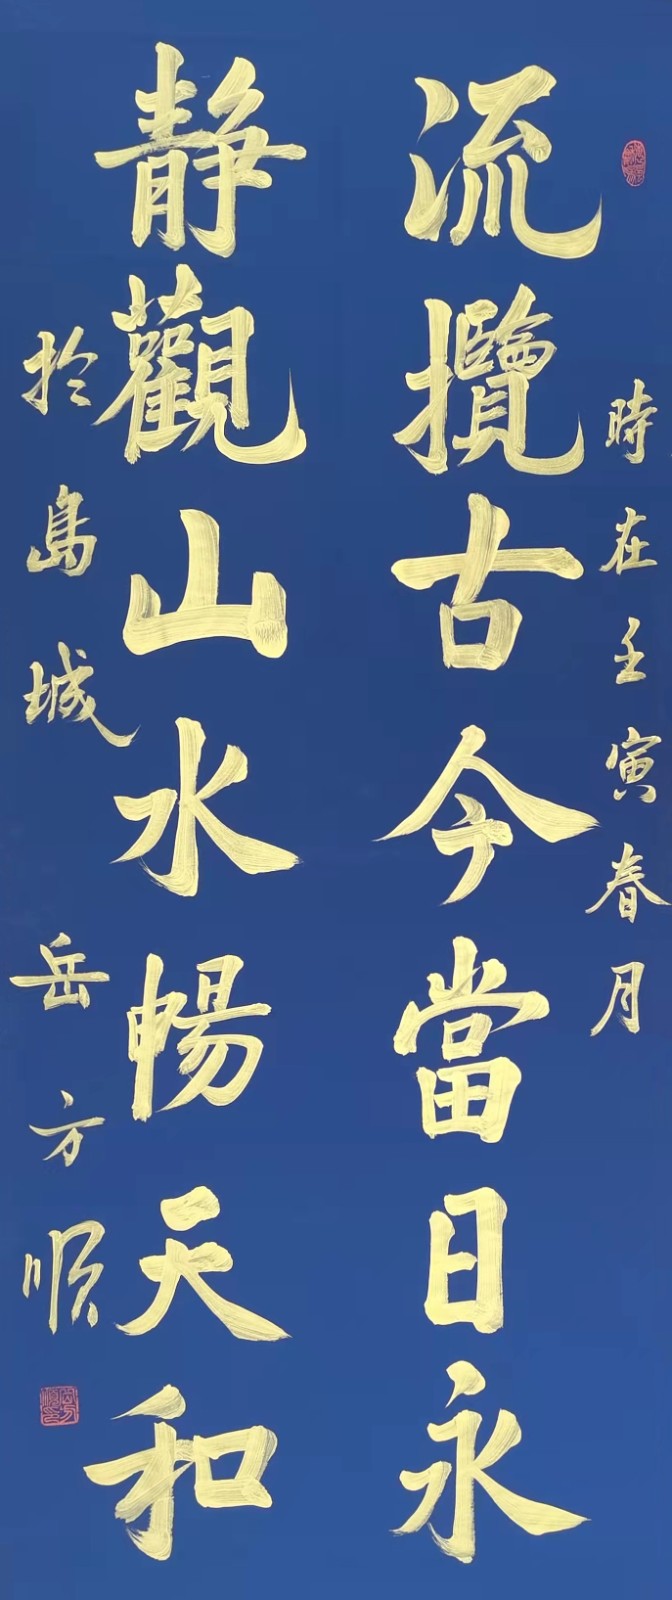 時在壬寅春月
流攬古今當日永
靜觀山水暢天和
於島城
岳方順